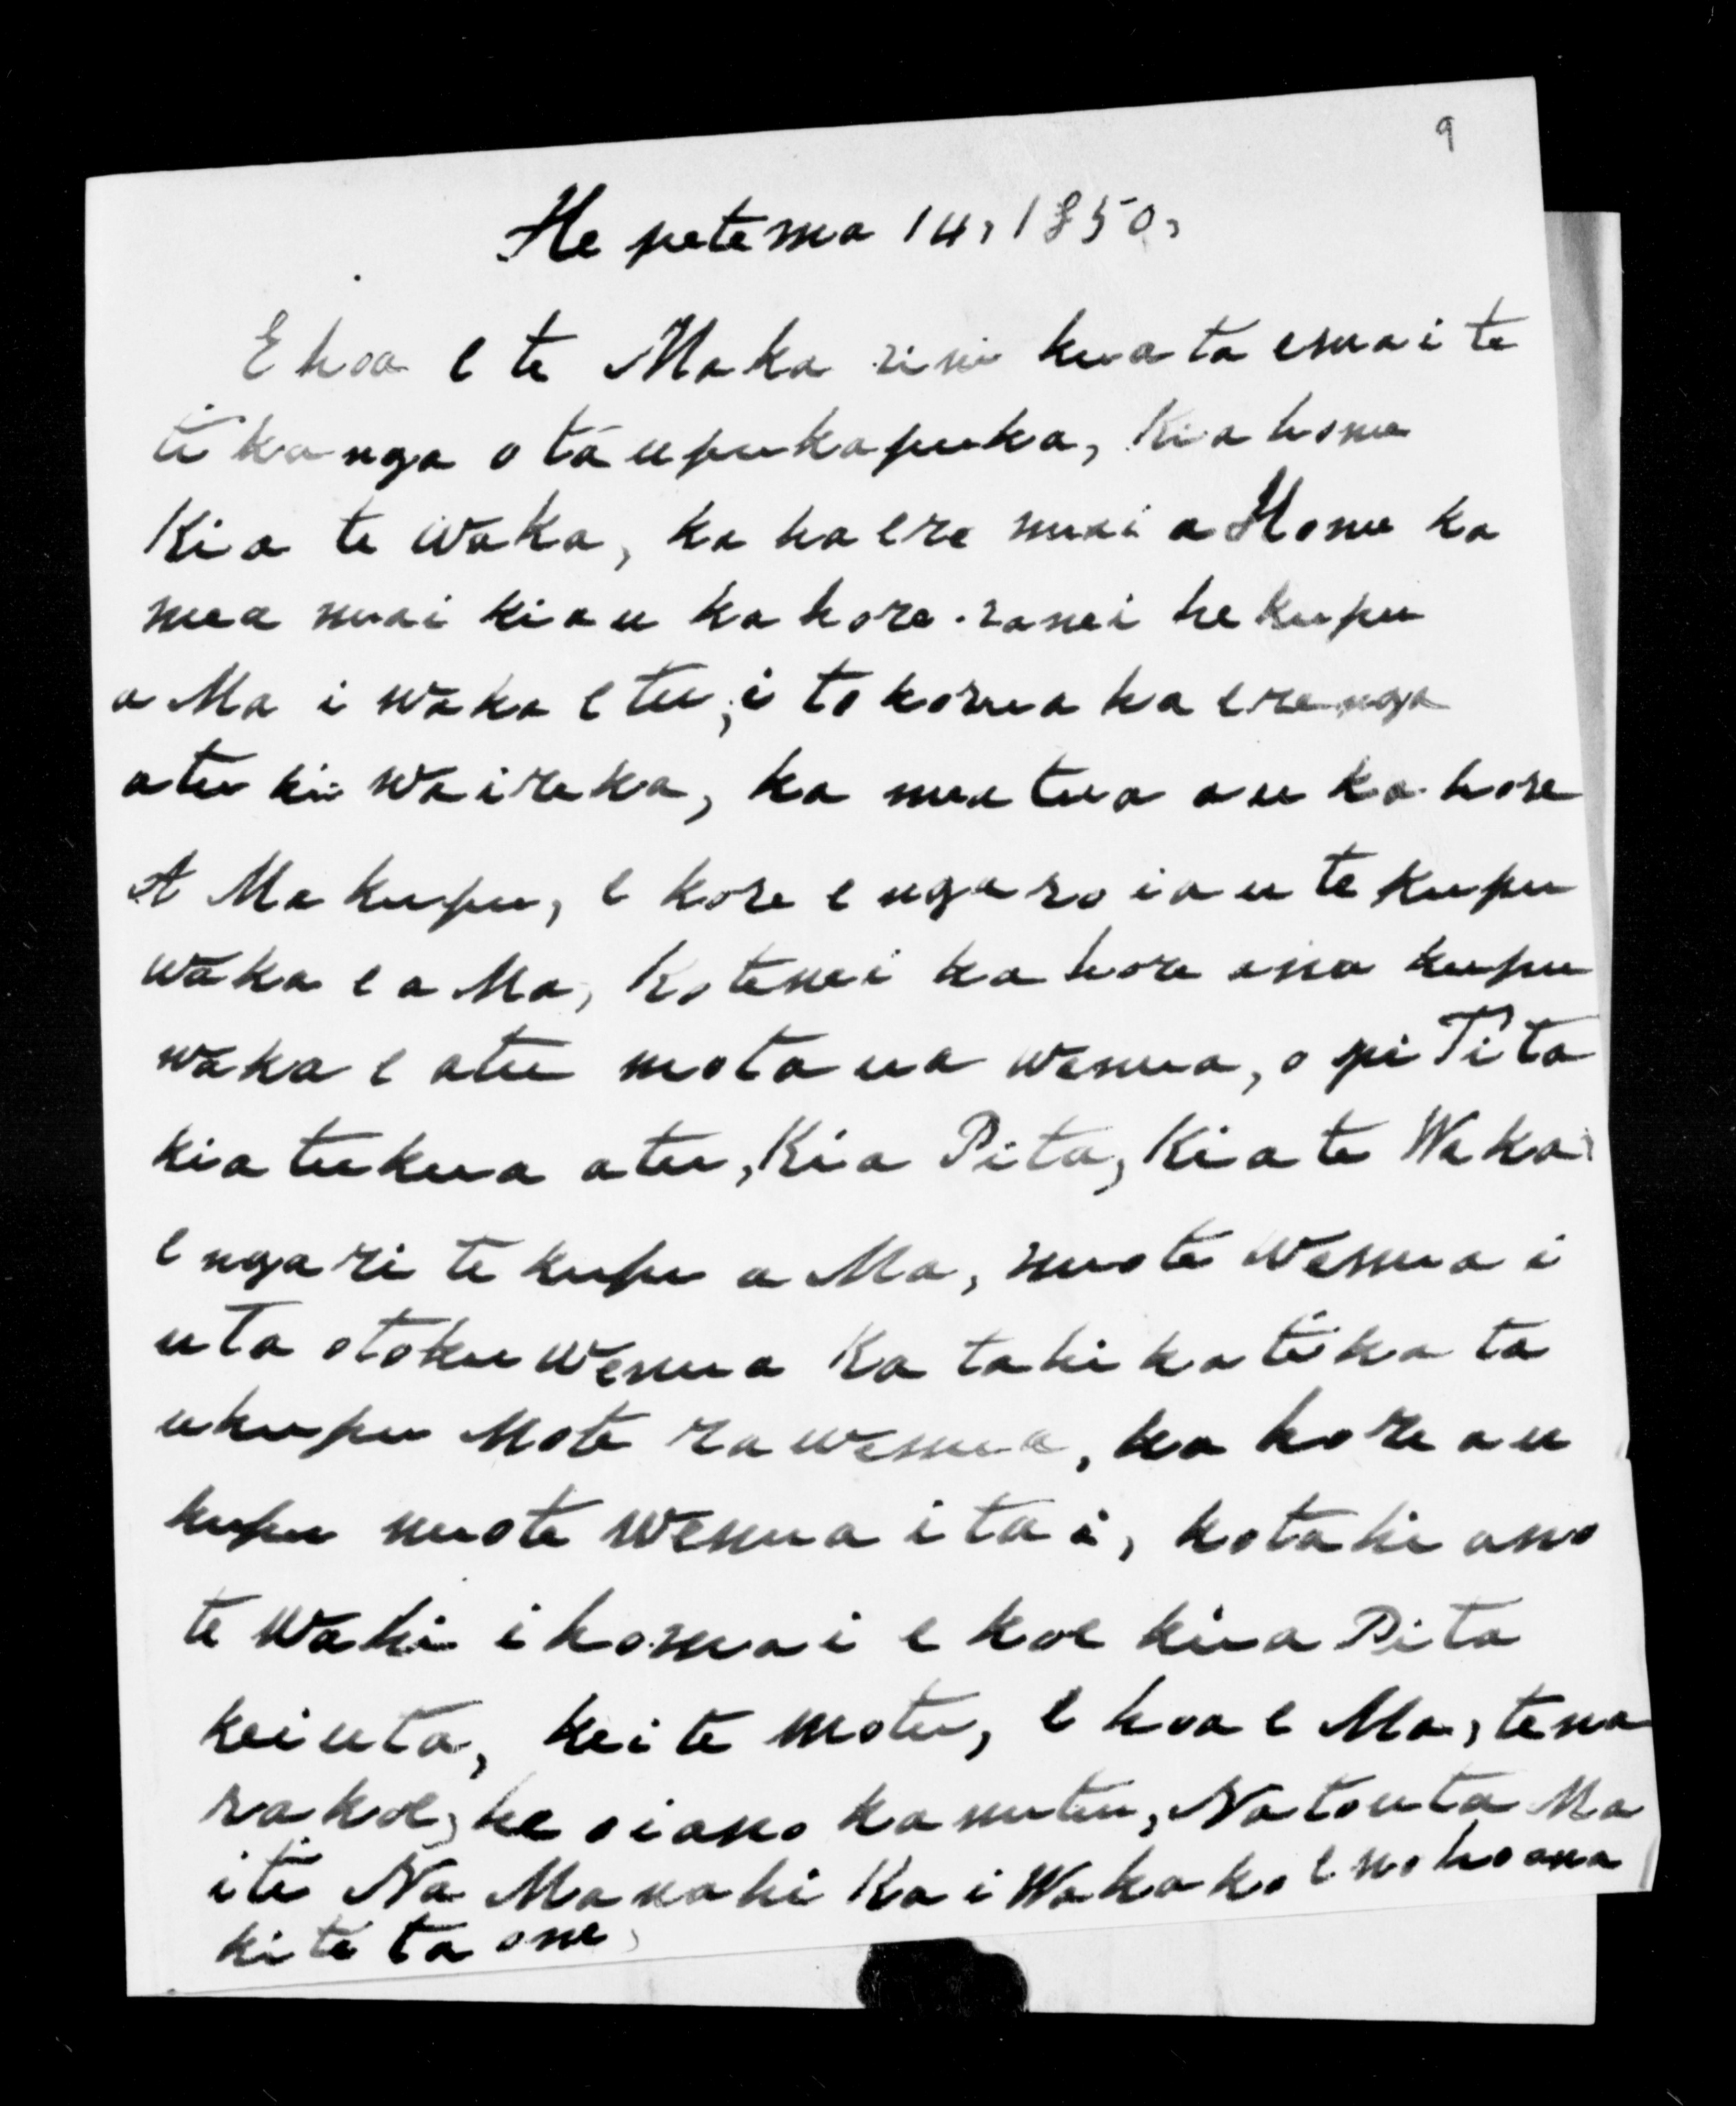 9
He petema 14, 1850,
E hoa e te Maka rini kua tae mai te
tikanga o tau pukapuka, Kia honu
Kia te Waka, ka haere mai a Honu ka
mea mai kiau kahore ranei he kupu
a Ma i waka etu, i to korua haerenga
atu ki Waireka, ka mea tua au kahore
A Ma kupu, e kore e ngaro iau te kupu
waka e a Ma, Ko tenei kahore ana kupu
waka e atu mo taua wenua, o pi Tita
kia tukua atu, Kia Pita, Kia te Waka
engari te kupu a Ma, mo te wenua i
uta o toku wenua Ka tahi ka tika ta
u kupu Mo te ra wenua, kahore au
kupu mo te wenua i tai, kotahi ano
te wahi i homai e koe kia Pita
kei uta, kei te motu, e hoa e Ma, tena
ra koe, he oiano ka mutu, Na to uta Ma
iti Na Manahi Kai Wakako e noho ana
ki te taone,